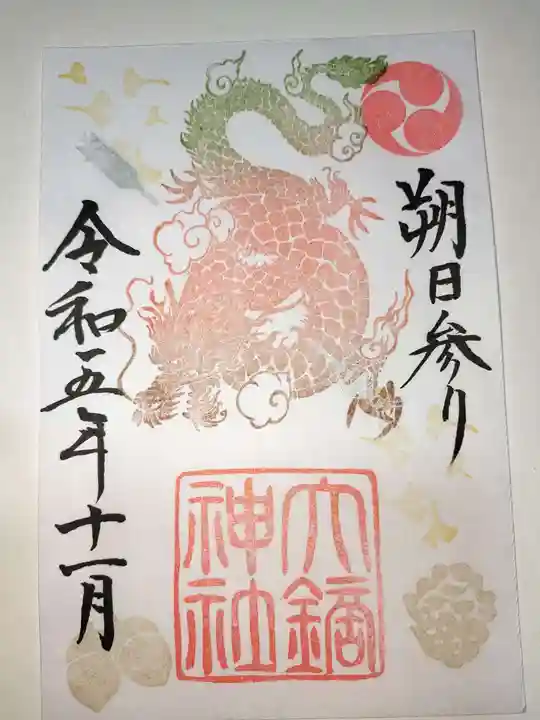 朔日参り
大鏑神社
令和五年十一月